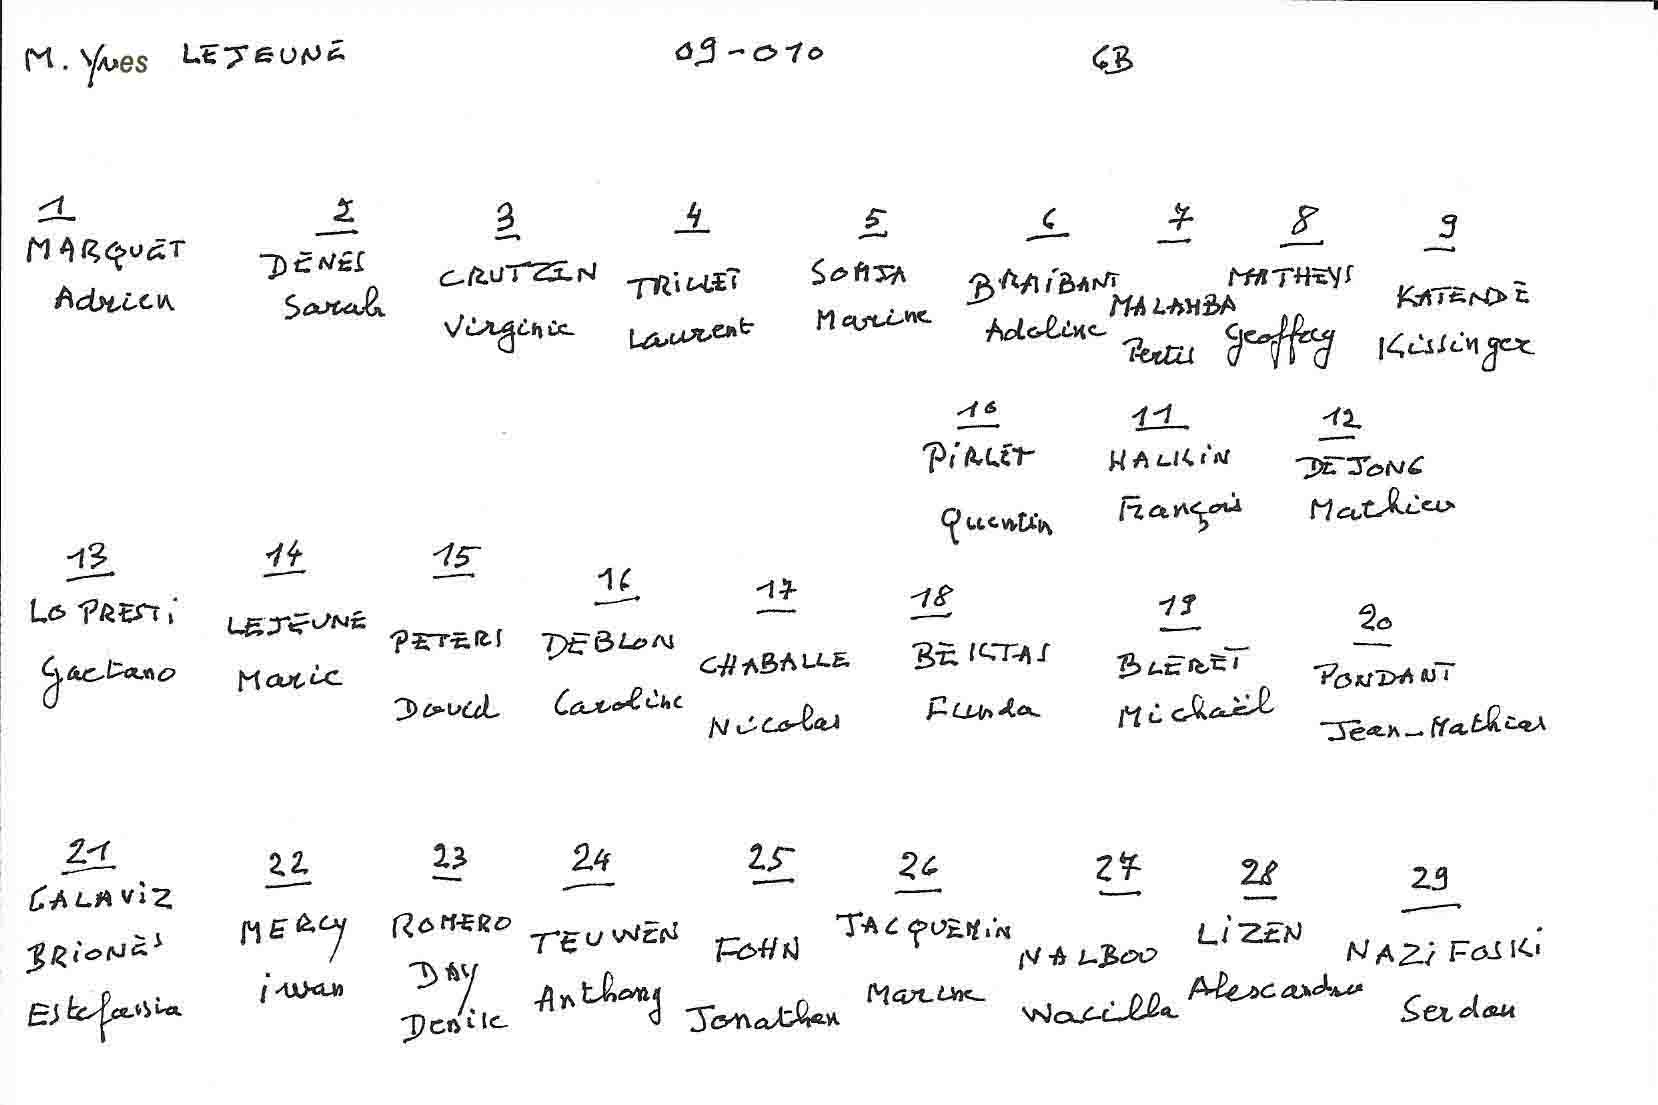 M. Yves LEJEUNE 09-010 6B
1 2 3 4 5 6 7 8 9
MARQUET DENES CRUTZEN TRILLET SOMJA BRAIBANT MALAMBA MATHEYS KATENDE
Adrien Sarah Virginie Laurent Marine Adeline Geoffrey Kissinger
10 11 12
PIRLET HALKIN DEJONG
Quentin François Mathieu
13 14 15 16 17 18 19 20
LO PRESTI LEJEUNE PETERS DEBLON CHABALLE BEIKTAS BLERET PONDANT
Gaetano Marie David Caroline Nicolas Funda Michaël Jean-Mathias
21 22 23 24 25 26 27 28 29
GALAVIZ MERCY ROMERO TEUWEN FOHN JACQUEMIN NALBOO LIZEN NAZIFOSKI
BRIONES iwan DAY Anthony Jonathan Marine Wacilla Alescandra Serdan
Estefania Denise